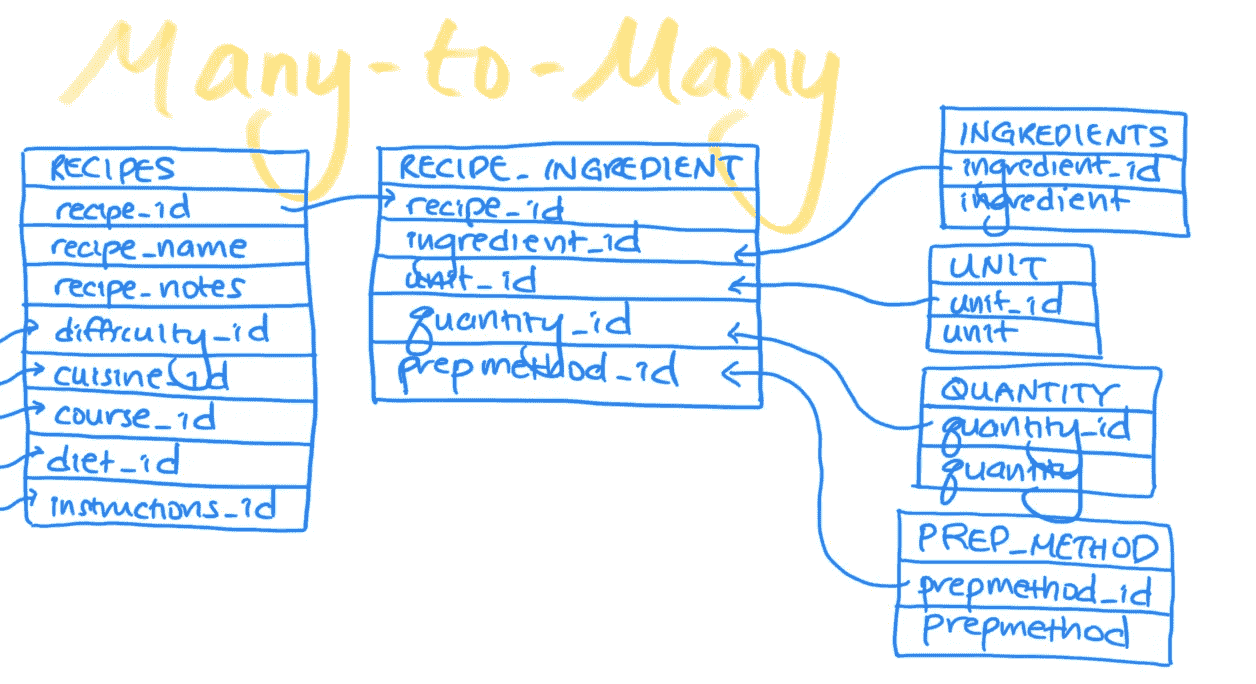 Many-to-Many
RECIPES
recipe_id
recipe_name
recipe_notes
difficulty_id
cuisine_id
course_id
diet_id
instructions_id
RECIPE_INGREDIENT
recipe_id
ingredient_id
unit_id
quantity_id
prepmethod_id
INGREDIENTS
ingredient_id
ingredient
UNIT
unit_id
unit
QUANTITY
quantity_id
quantity
PREP_METHOD
prepmethod_id
prepmethod